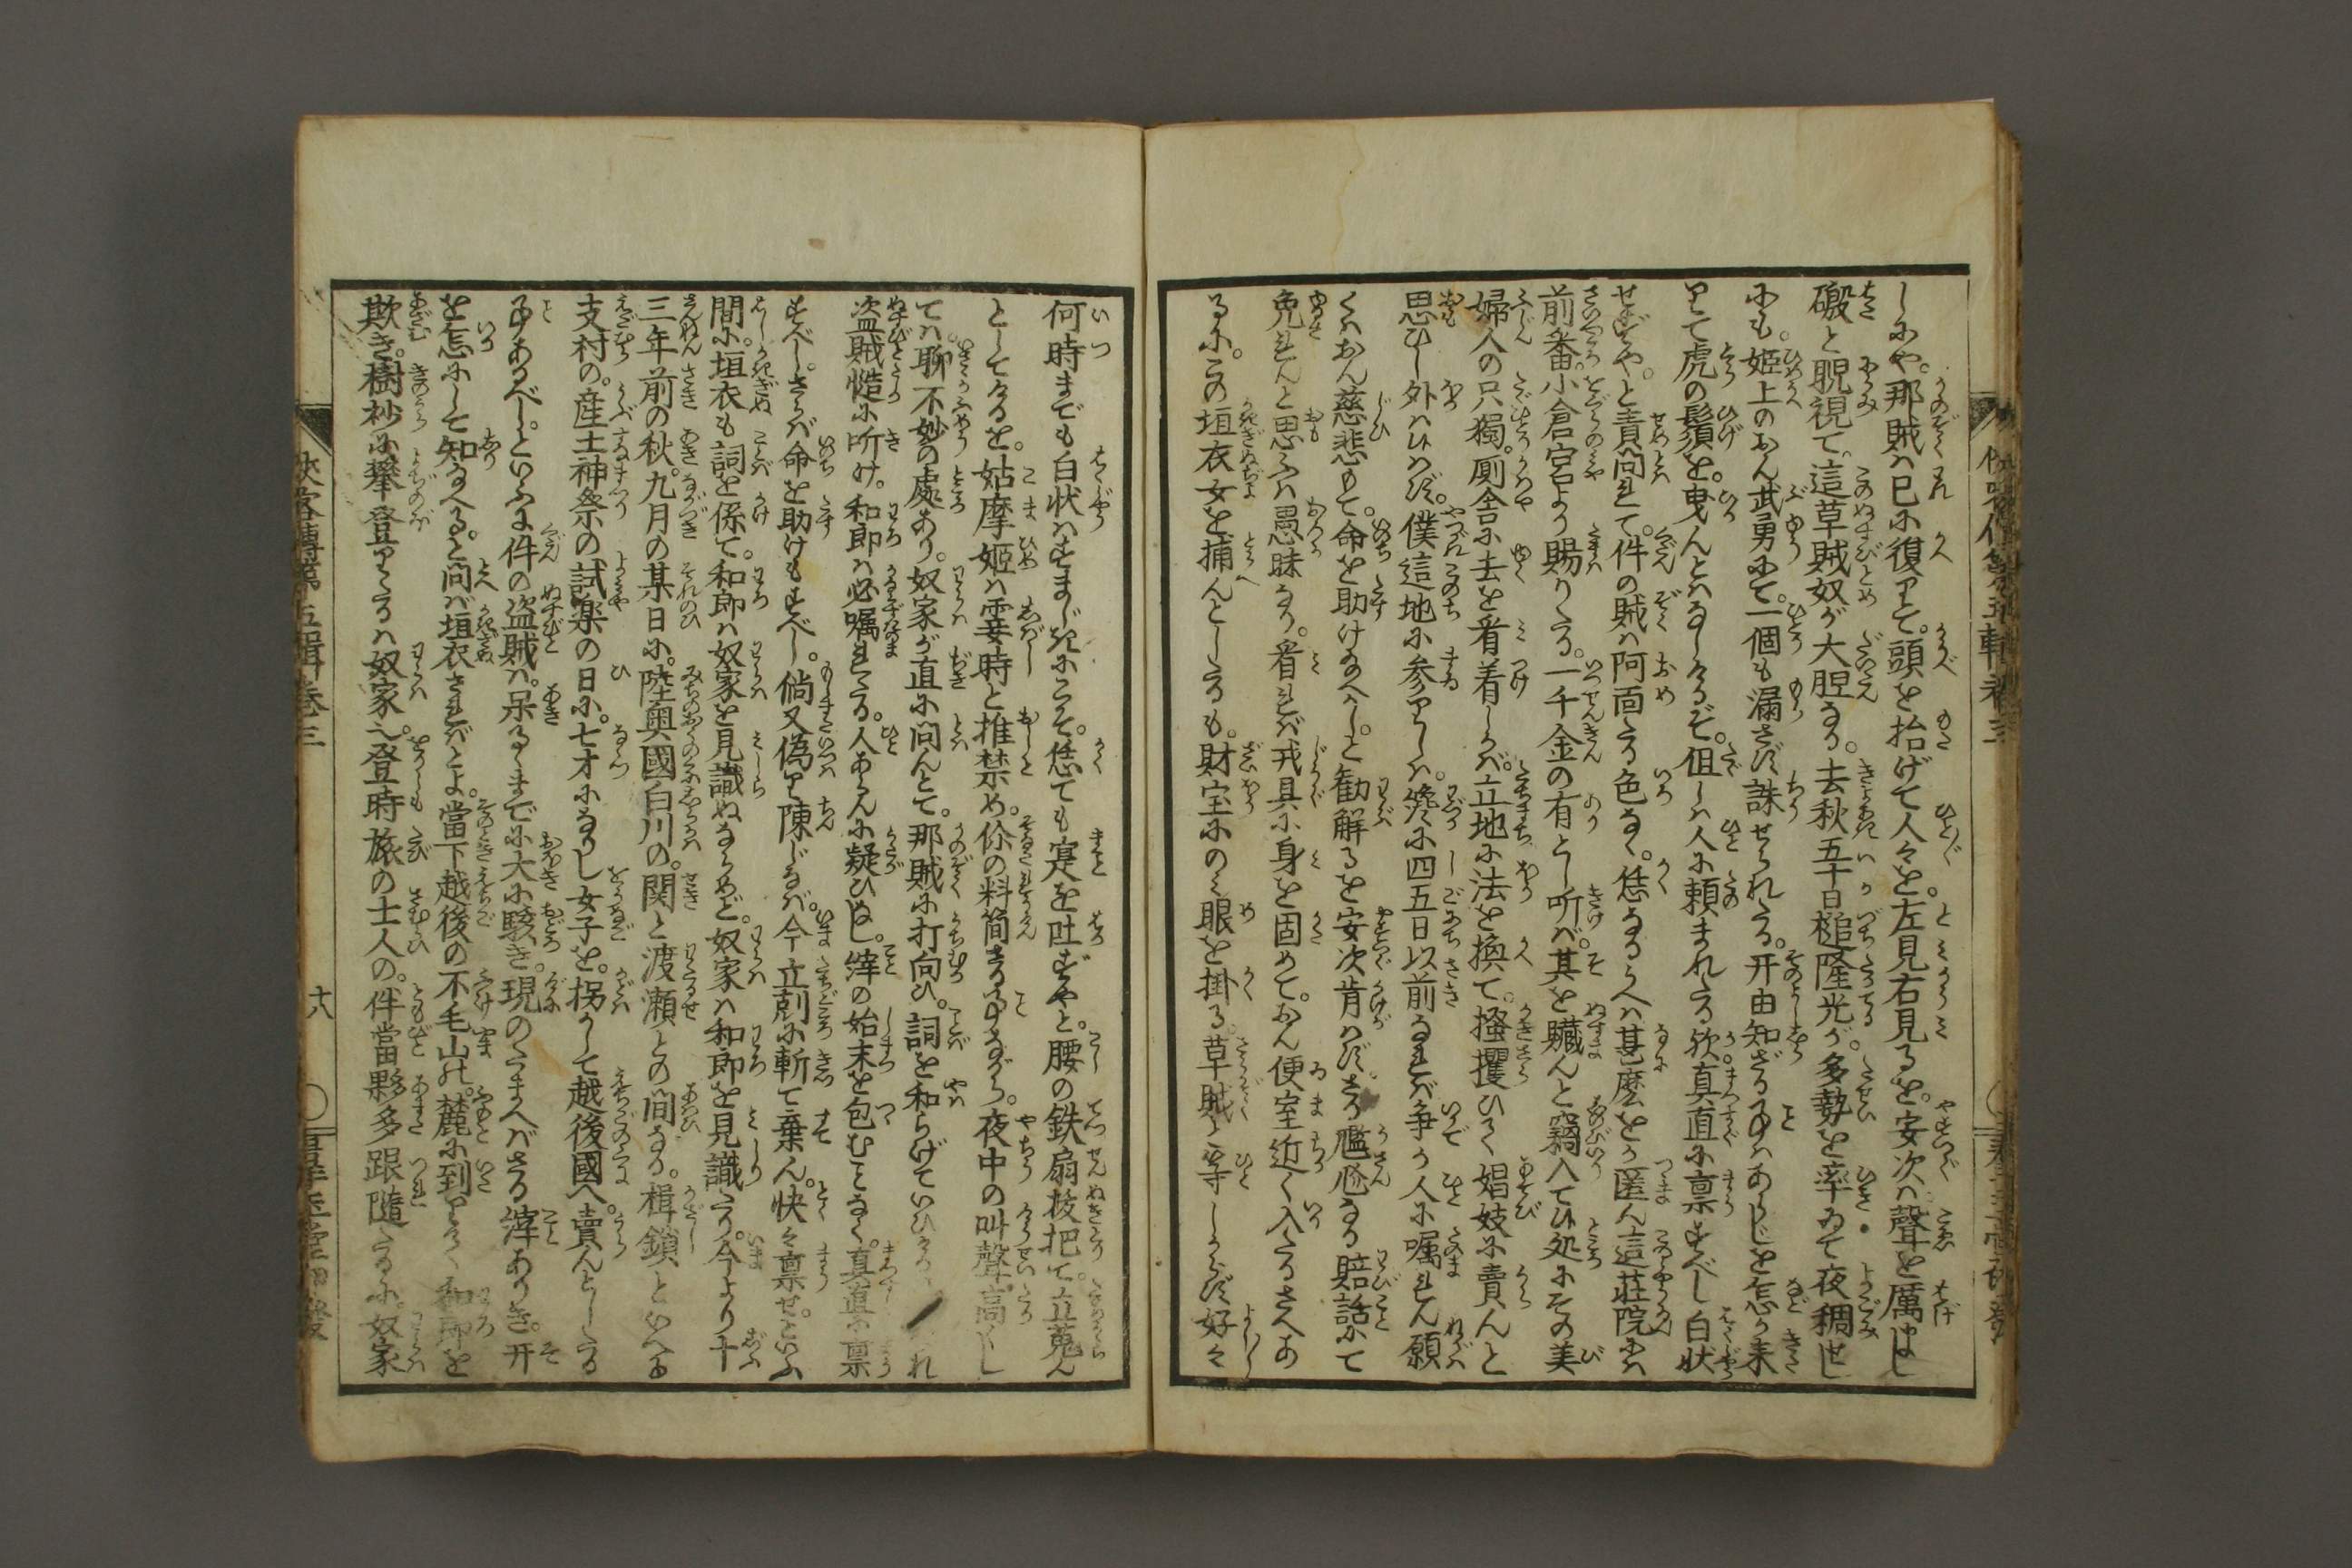 しにや。那賊ハ已に復りて。頭を抬げて人々を。左見右見るを。安次ハ聲を厲まし
礟と睨視て。這草賊奴が大胆なる。去秋五十日槌隆光が。多勢を率ゐて夜稠せし
にも。姫上のおん武勇にて。一個も漏さず誅せられたる。开由知ざる事ハあらじを怎か来
りて虎の鬚を。曳んとハなしけるぞ。伹しハ人に頼まれたる欤。真直に禀すべし白状
せずや。と責問れて。件の賊ハ阿面たる色なく。恁なるうへハ甚麼をか匿ん這莊院にハ
前番。小倉宮より賜りたる。一千金の有とし听バ。其を贓んと竊入てひ処にその美
婦人の只獨。厠舎に去を看着しかバ。立地に法を換て。搔攫ひく娼妓に賣んと
思ひし外ハひハず。僕這地に参りしハ。纔に四五日以前なれバ争か人に嘱れん願
くハおん慈悲もて。命を助け給へかし。と勧解るを安次肯ハず。さる尷尬なる賠話にて
免れんと思ふハ愚昧なり。看れバ戎具に身を固めて。おん便室近く入たるさへあ
るに。この垣衣女を捕んとしたるも。財宝にのミ眼を掛る。草賊と等しからず好々
何時までも白状ハすまじきにこそ。恁ても寔を吐ずや。と。腰の鉄扇抜把て。立蒐ん
としてけるを。姑摩姫ハ霎時と推禁め。伱の料簡さる事ながら。夜中の叫聲高くし
てハ。聊不妙の處あり。奴家が直に問んとて。那賊に打向ひ。詞を和らげていひける
盗賊慥に听け。和郎ハ必嘱れたる。人あらんに疑ひなし。縡の始末を包むことなく。真直に禀
すべし。さらバ命を助けもすべし。倘又偽り陳じなバ。今立刻に斬て棄ん。快々禀せ。といふ
間に。垣衣も詞を係て。和郎ハ奴家を見識ぬならめど。奴家ハ和郎を見識たり。今より十
三年前の秋。九月の某日に。陸奥國白川の。関と渡瀬との間なる。楫鎖といへる
支村の。産土神祭の試楽の日に。七才になりし女子を。拐かして越後國へ。賣んとしたる
事あるべし。といふに件の盗賊ハ。呆るゝまでに大に駭き。現のたまへバさる縡ありき。开
を怎にして知給へる。と問バ垣衣さればとよ。當下越後の不毛山の。麓に到りしく和郎を
欺き。樹杪に攀登りたるハ奴家也。登時旅の士人の。伴當夥多跟隨たるに。奴家
侠客傳第五輯巻三
十八